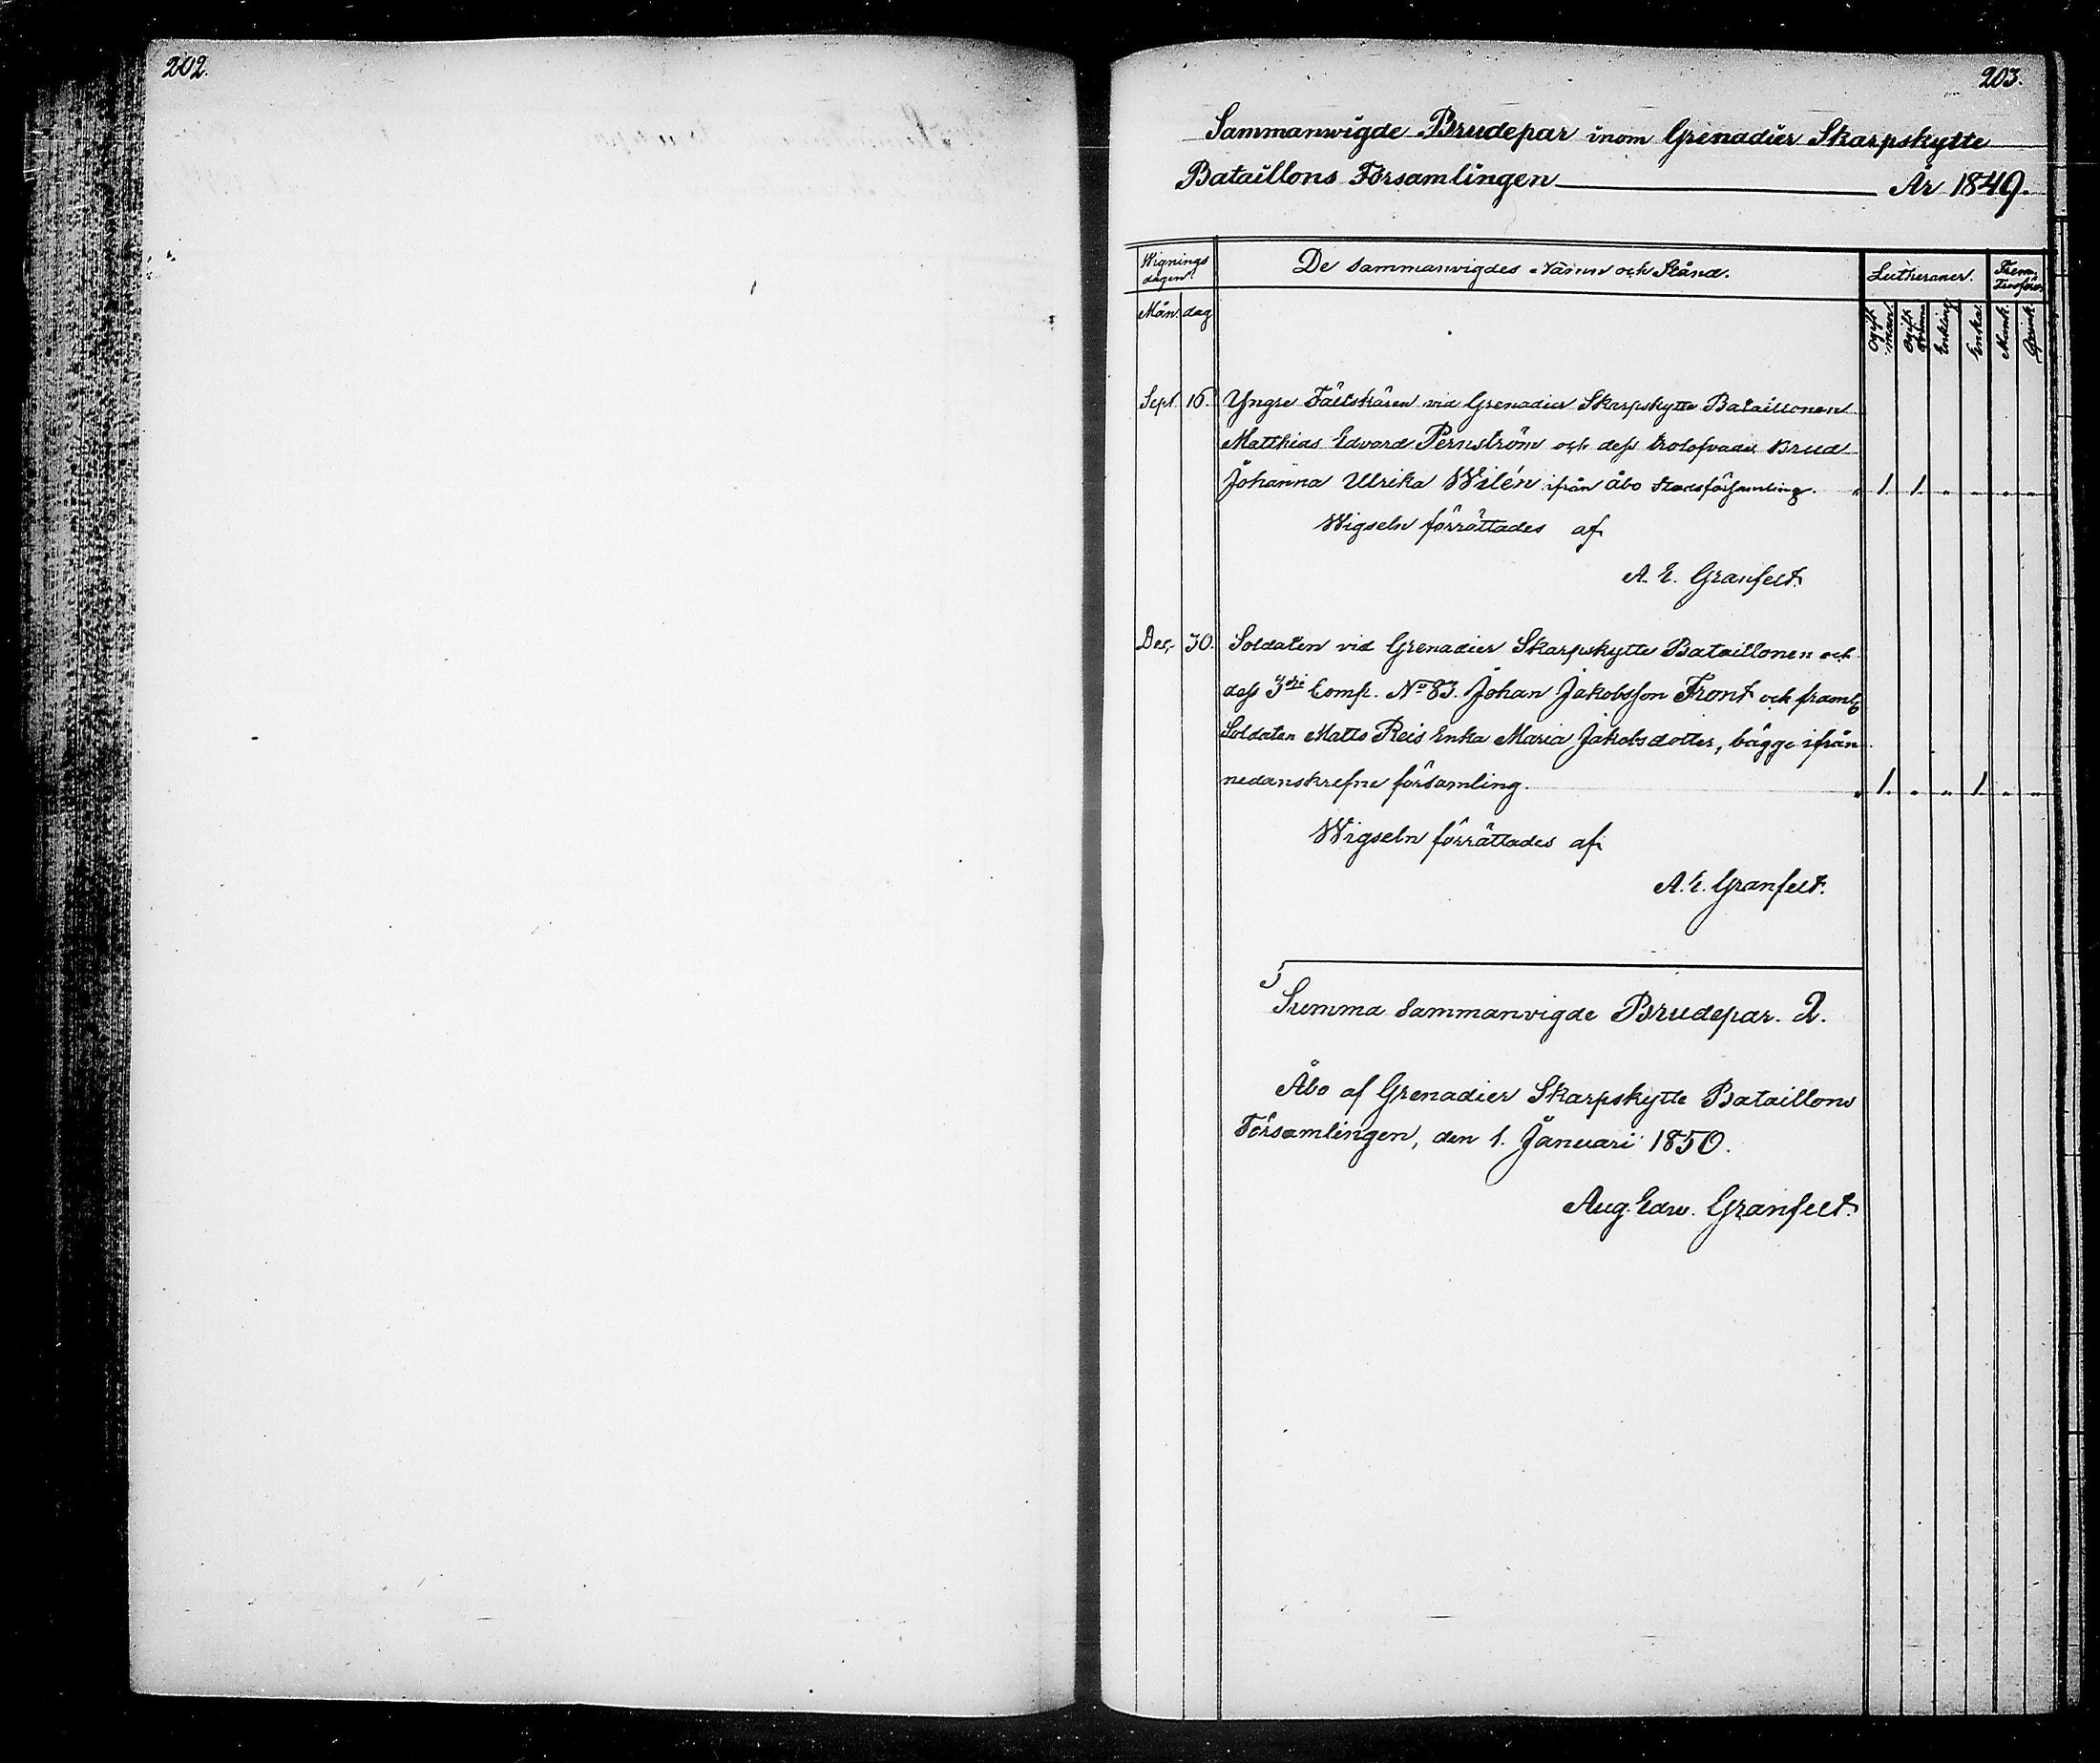 202.
203.
Sammanwigde Brudepar inom Grenadier Skarpskytte
Bataillons Församlingen År 1849.
Wignings dagen. De sammanvigdes Namn och Stånd. Lutheraner. Trosförv.
Mån. dag Ogift man. Ogift qvinna Enkling Enka. Mank. Qvink.
Sept. 16. Yngre Fältskären vid Grenadier Skarpskytte Bataillonen
Matthias Edvard Pernström och dess trolofvade Brud
Johanna Ulrika Wilén ifrån Åbo Stadsförsamling. " 1. 1. " " " "
Wigseln förrättades af
A. E. Granfelt.
Dec. 30. Soldaten vid Grenadier Skarpskytte Bataillonen och
dess 3dje Comp. No 83. Johan Jakobsson Front och framl.
Soldaten Matts Reis Enka Maria Jakobsdotter, bägge ifrån
nedanskrefne församling. " 1. " " 1. " "
Wigseln förrättades af
A. E. Granfelt.
Summa sammanvigde Brudepar. 2.
Åbo af Grenadier Skarpskytte Bataillons
Församlingen, den 1. Januari 1850.
Aug. Edw. Granfelt.